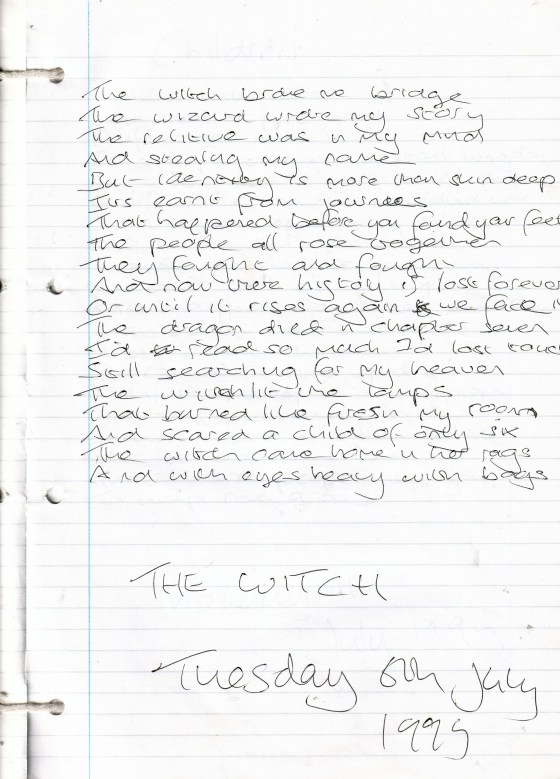 The witch broke no bridge
The wizard wrote my story
The relitive was in my mind
And stealing my name
But identity is more than skin deep
It's earnt from journees
That happened before you found your feet
The people all rose together
They fought and fought
And now there history is lost forever
Or until it rises again we face
The dragon died in chapter seven
I'd read so much I'd lost touch
Still searching for my heaven
The witch lit the lamps
That burned like fires in my room
And scared a child of only six
The witch came home in rags
And with eyes heavy with bags
THE WITCH
Tuesday 6th July
1999